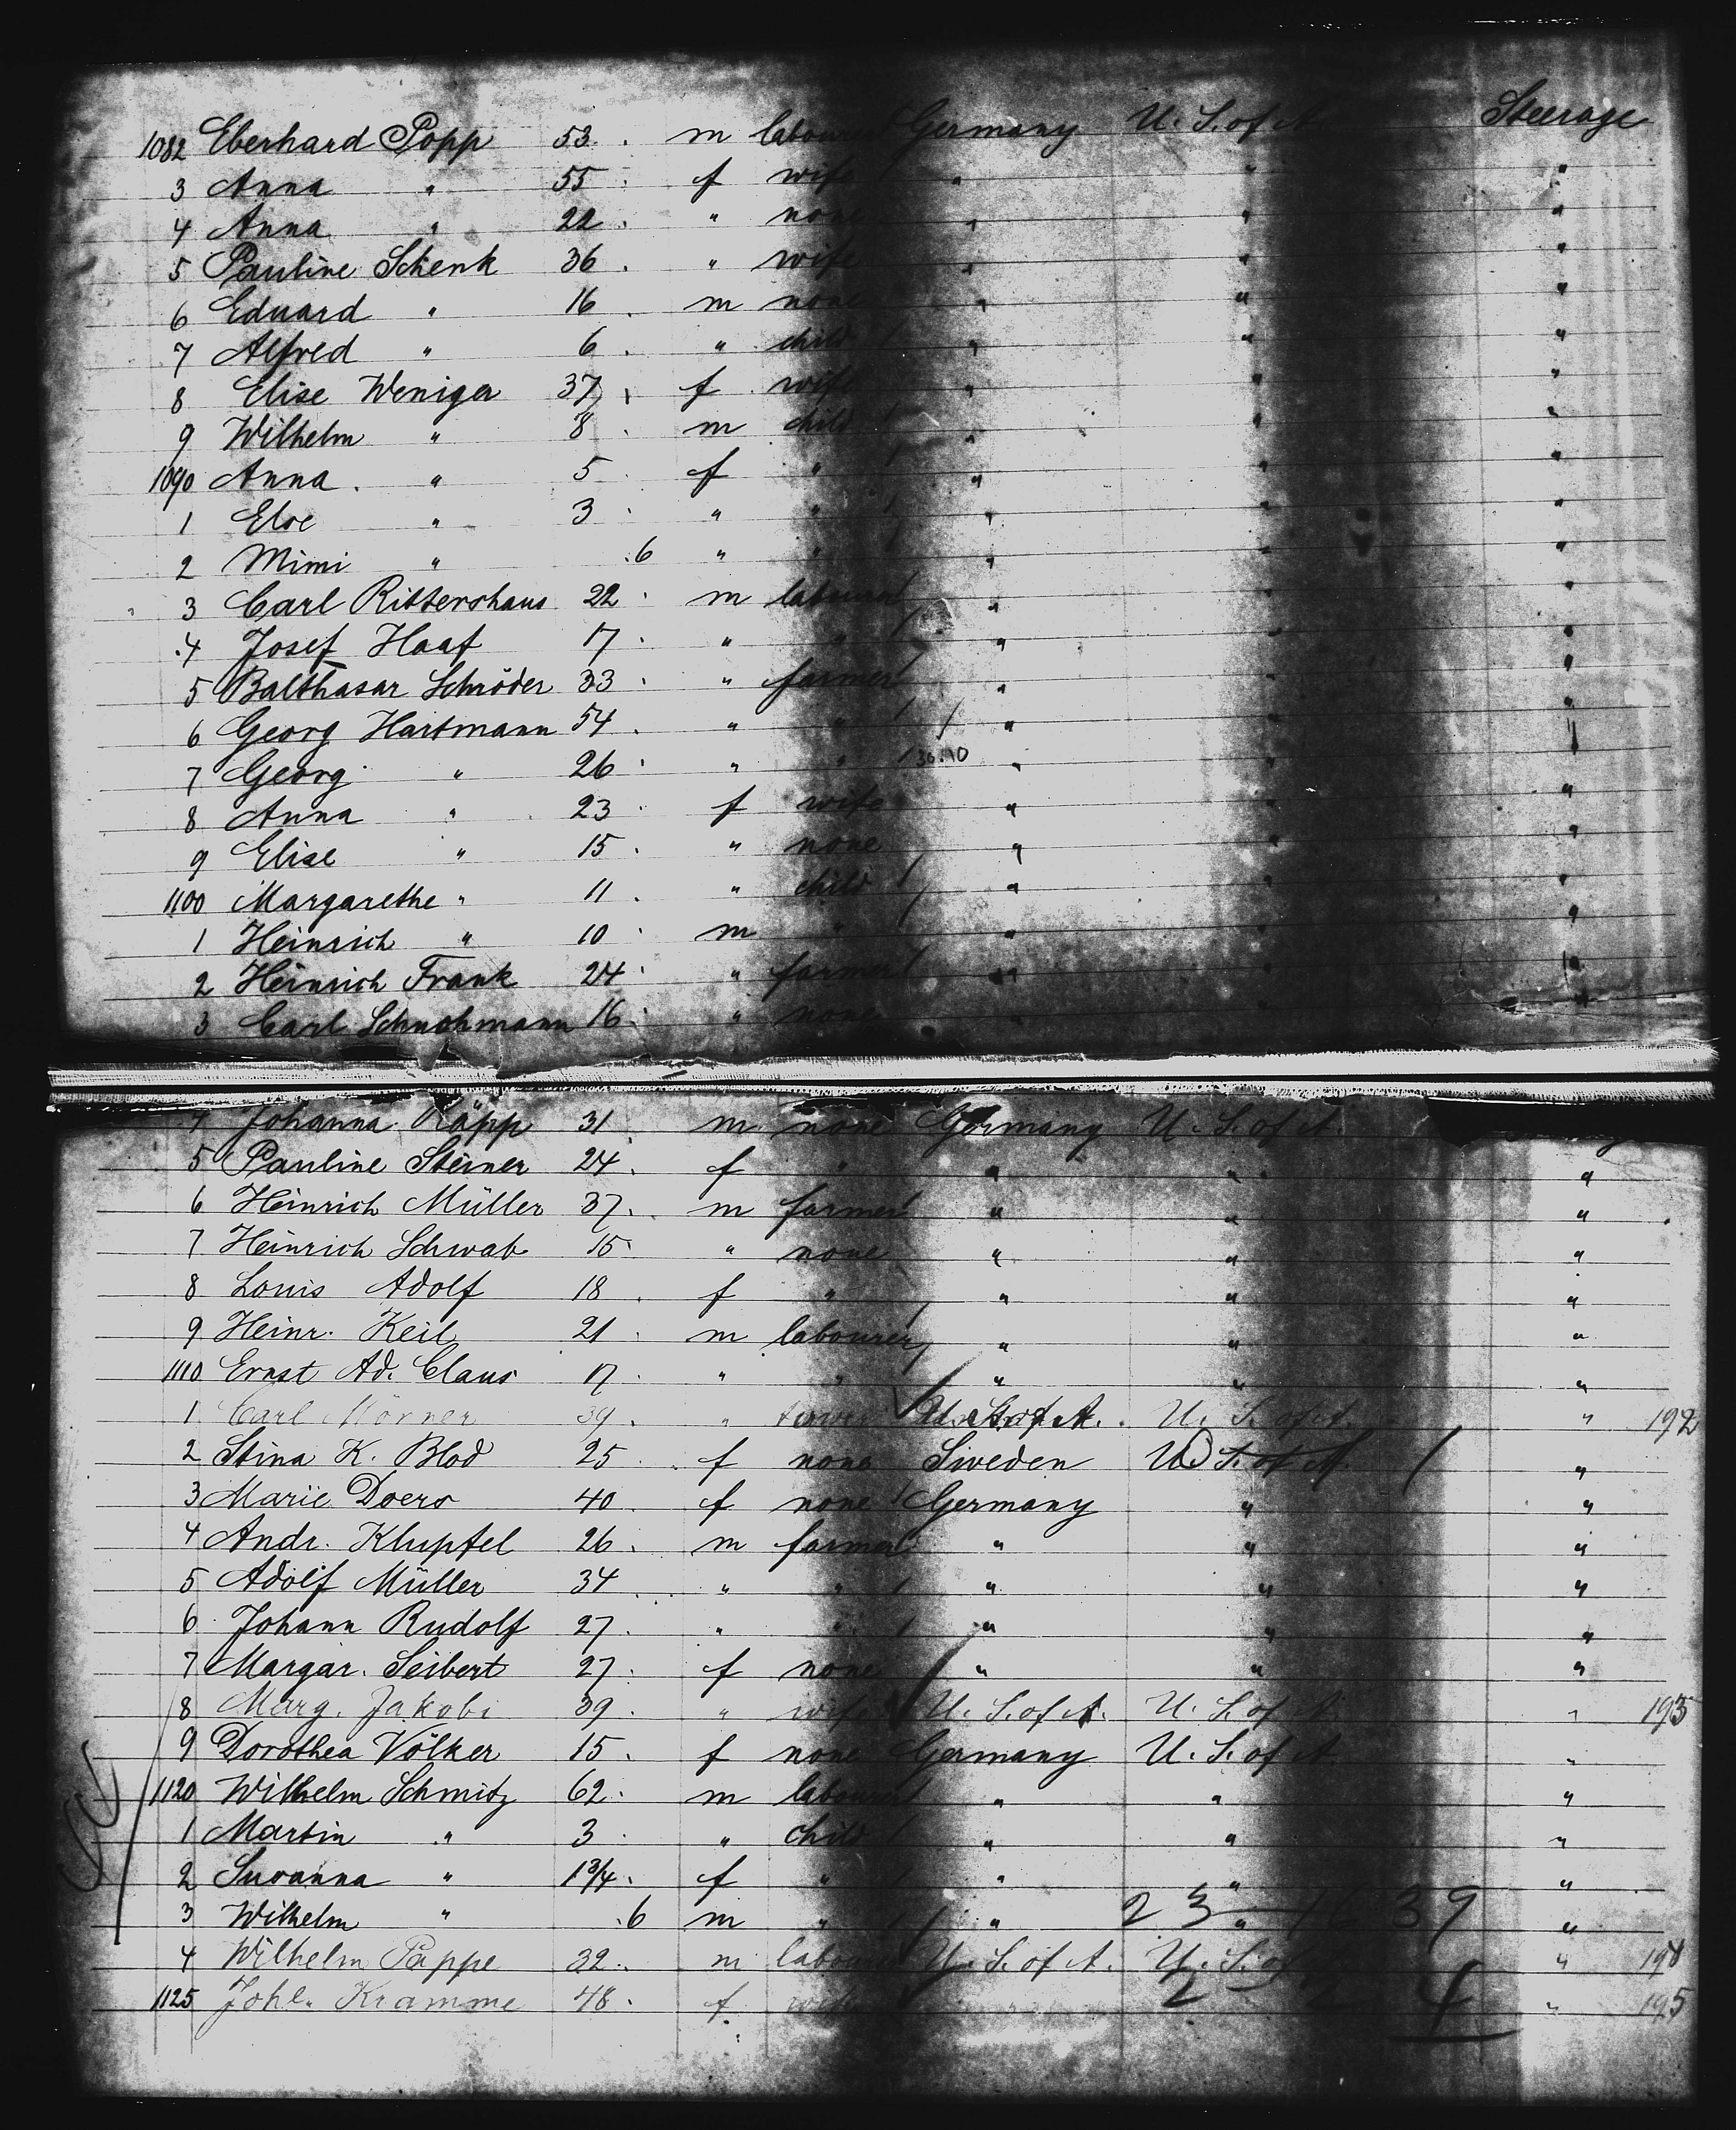 1082 Eberhard Popp 53. m labourer Germany U. S. of A Steerage
3 Anna " 55. f wife " " "
4 Anna " 22. " none " " "
5 Pauline Schenk 36. " wife " " "
6 Eduard " 16. m none " " "
7 Alfred " 6. " child " " "
8 Elise Weniger 37. f wife " " "
9 Wilhelm " 8. m child " " "
1090 Anna. " 5. f " " " "
1 " 3. " " " " "
2 Mimi " .6 " " " " "
3 Carl Rittershaus 22. m labourer " " "
4 Josef Haaf 17. " " " " "
5 Balthasar Schröder 33. " farmer " " "
6 Georg Hartmann 54. " " " " "
7 Georg " 26. " " " " "
8 Anna " 23. f wife " " "
9 Elise " 15. " none " " "
1100 Margarethe " 11. " child " " "
1 Heinrich " 10. m " " " "
2 Heinrich Frank 24. " farmer " " "
3 Carl 16. " none " " "
Johanna Käpp 31 m none Germany U. S. of A.
5 Pauline Steiner 24. f " " " "
6 Heinrich Müller 37. m farmer " " "
7 Heinrich Schwab 15. " none " " "
8 Louis Adolf 18. f " " " "
9 Heinr. Keil 21. m labourer " " "
1110 Ernst Ad. Claus 17. " " " " "
1 Carl Mörner 39. " U. S. of A. U. S. of A. " 192
2 Stina K. Blod 25. f none Sweden U. S. of A. "
3 Marie Doers 40. f none Germany " "
4 Andr. Klupfel 26. m farmer " " "
5 Adolf Müller 34. " " " " "
6 Johann Rudolf 27. " " " " "
7 Margar. Seibert 27. f none " " "
8 Marg. Jakobi 39. " wife U. S. of A. U. S. of A. " 193
9 Dorothea Völker 15. f none Germany U. S. of A. "
1120 Wilhelm Schmitz 62. m labourer " " "
1 Martin " 3. " child " " "
2 Susanna " 1 3/4. f " " " "
3 Wilhelm " .6 m " " " "
4 Wilhelm Pappe 32. m labourer U. S. of A. U. S. of " 194
1125 Johl. Kramme 48. f wife " 195